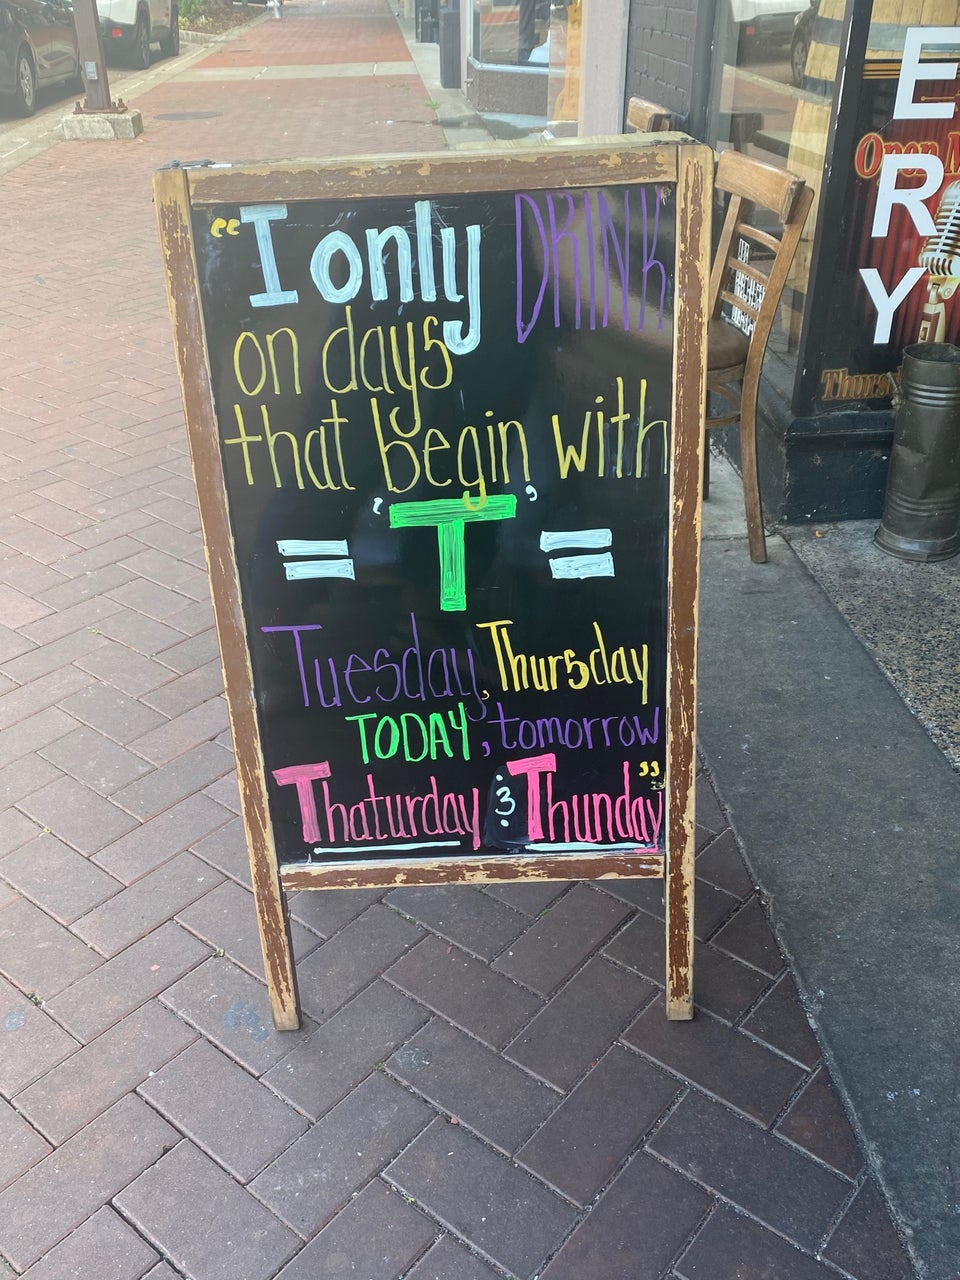 “I only DRINK
on days
that begin with
= ‘T’ =
Tuesday, Thursday
TODAY, tomorrow
Thaturday & Thunday”
E
R
Y
Open
Thurs